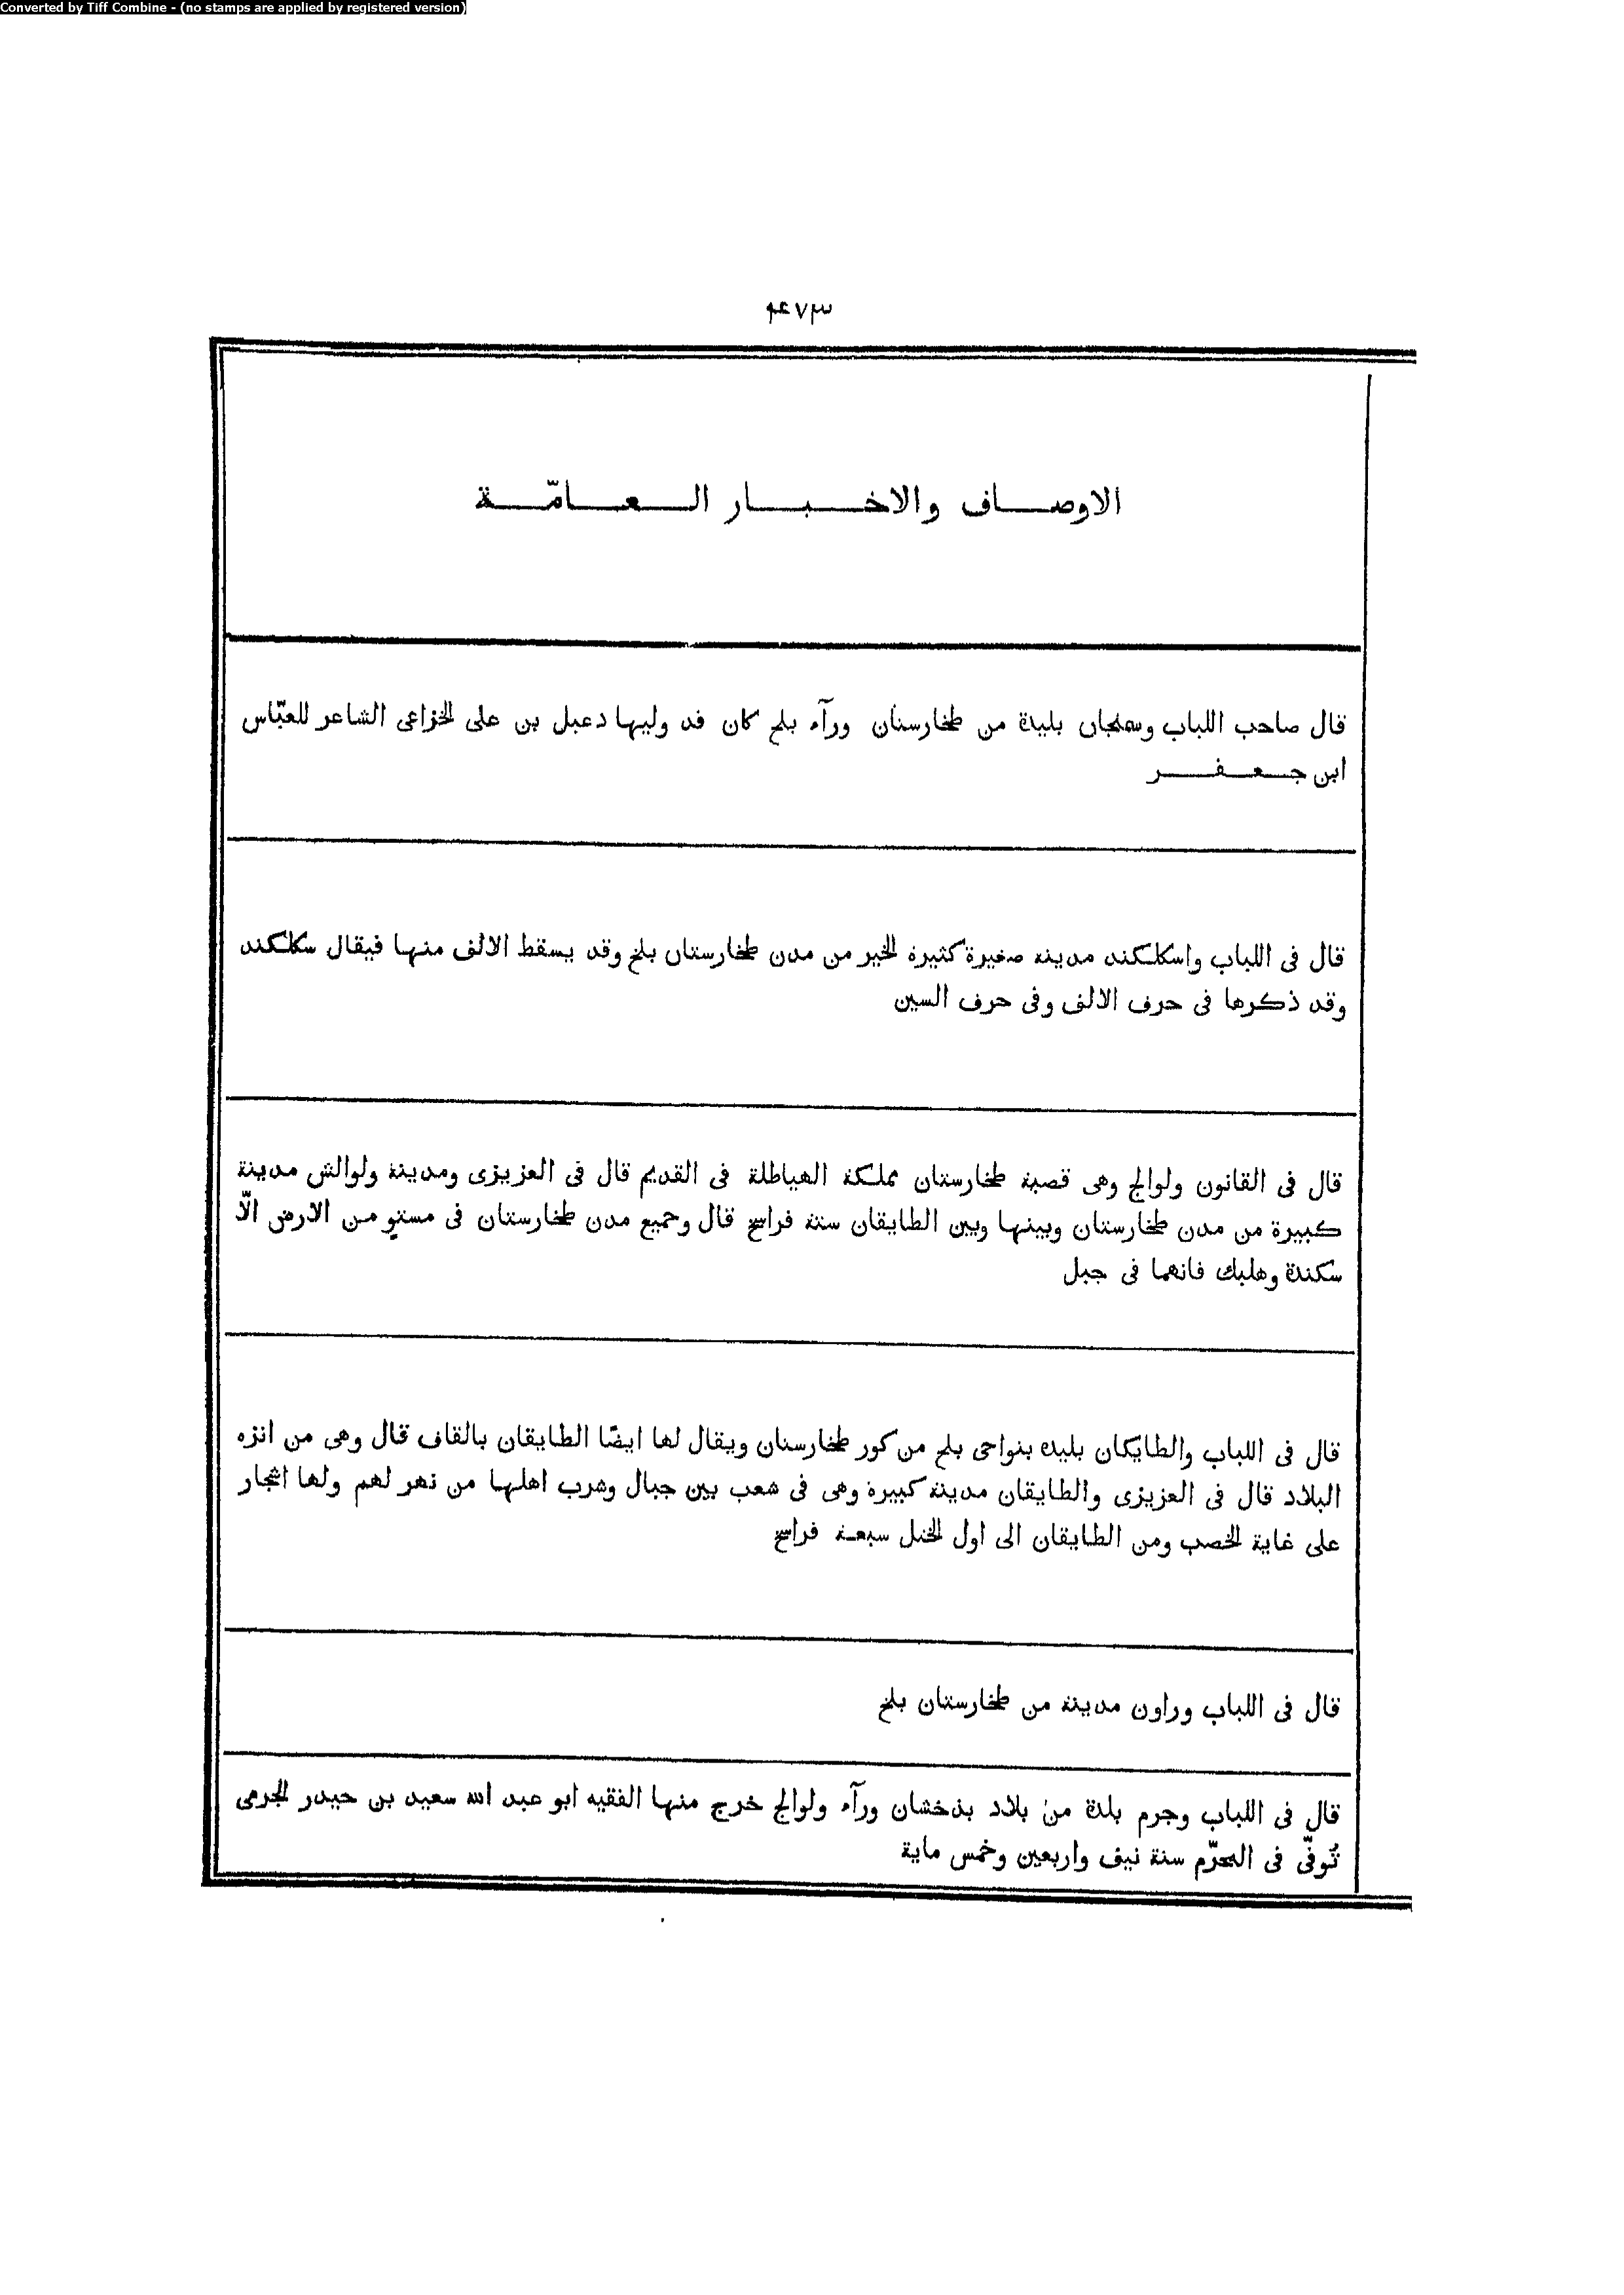 Converted by Tiff Combine - (no stamps are applied by registered version)
۴۷۳
الاوصاف والاخبار العامّة
قال صاحب اللباب وسمنجان بليدة من طخارستان ورآء بلخ كان قد وليها دعبل بن على الخزاعى الشاعر للعبّاس
ابن جعفر
قال فى اللباب واسكلكند مدينة صغيرة كثيرة الخير من مدن طخارستان بلخ وقد يسقط الالف منها فيقال سكلكند
وقد ذكرها فى حرف الالف وفى حرف السين
قال فى القانون ولوالج وهى قصبة طخارستان مملكة الهياطلة فى القديم قال فى العزيزى ومدينة ولوالش مدينة
كبيرة من مدن طخارستان وبينها وبين الطايقان ستة فراسخ قال وجميع مدن طخارستان فى مستوٍ من الارض الّا
سكندة وهلبك فانهما فى جبل
قال فى اللباب والطايكان بليدة بنواحى بلخ من كور طخارستان ويقال لها ايضًا الطايقان بالقاف قال وهى من انزه
البلاد قال فى العزيزى والطايقان مدينة كبيرة وهى فى شعب بين جبال وشرب اهلها من نهر لهم ولها اشجار
على غاية الخصب ومن الطايقان الى اول الختل سبعة فراسخ
قال فى اللباب وراون مدينة من طخارستان بلخ
قال فى اللباب وجرم بلدة من بلاد بذخشان ورآء ولوالج خرج منها الفقيه ابو عبد الله سعيد بن حيدر الجرمى
تُوفّى فى المحرّم سنة نيف واربعين وخمس ماية